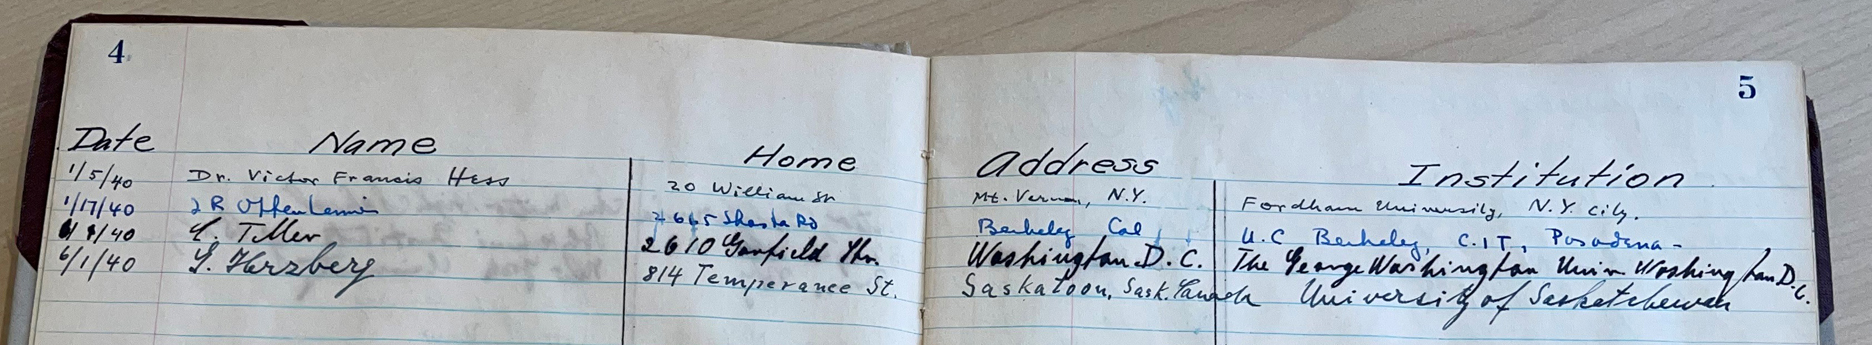 4
5
Date Name Home Address Institution
1/5/40 Dr. Victor Francis Hess 20 William Str Mt. Vernon, N.Y. Fordham University, N.Y. City.
1/17/40 J R Oppenheimer 2665 Shasta Rd Berkeley Cal U.C Berkeley, C.I T, Pasadena -
/40 E. Teller 2610 Garfield Str. Washington D.C. The George Washington Univ. Washington D.C.
6/1/40 G. Herzberg 814 Temperance St. Saskatoon, Sask. Canada University of Saskatchewan